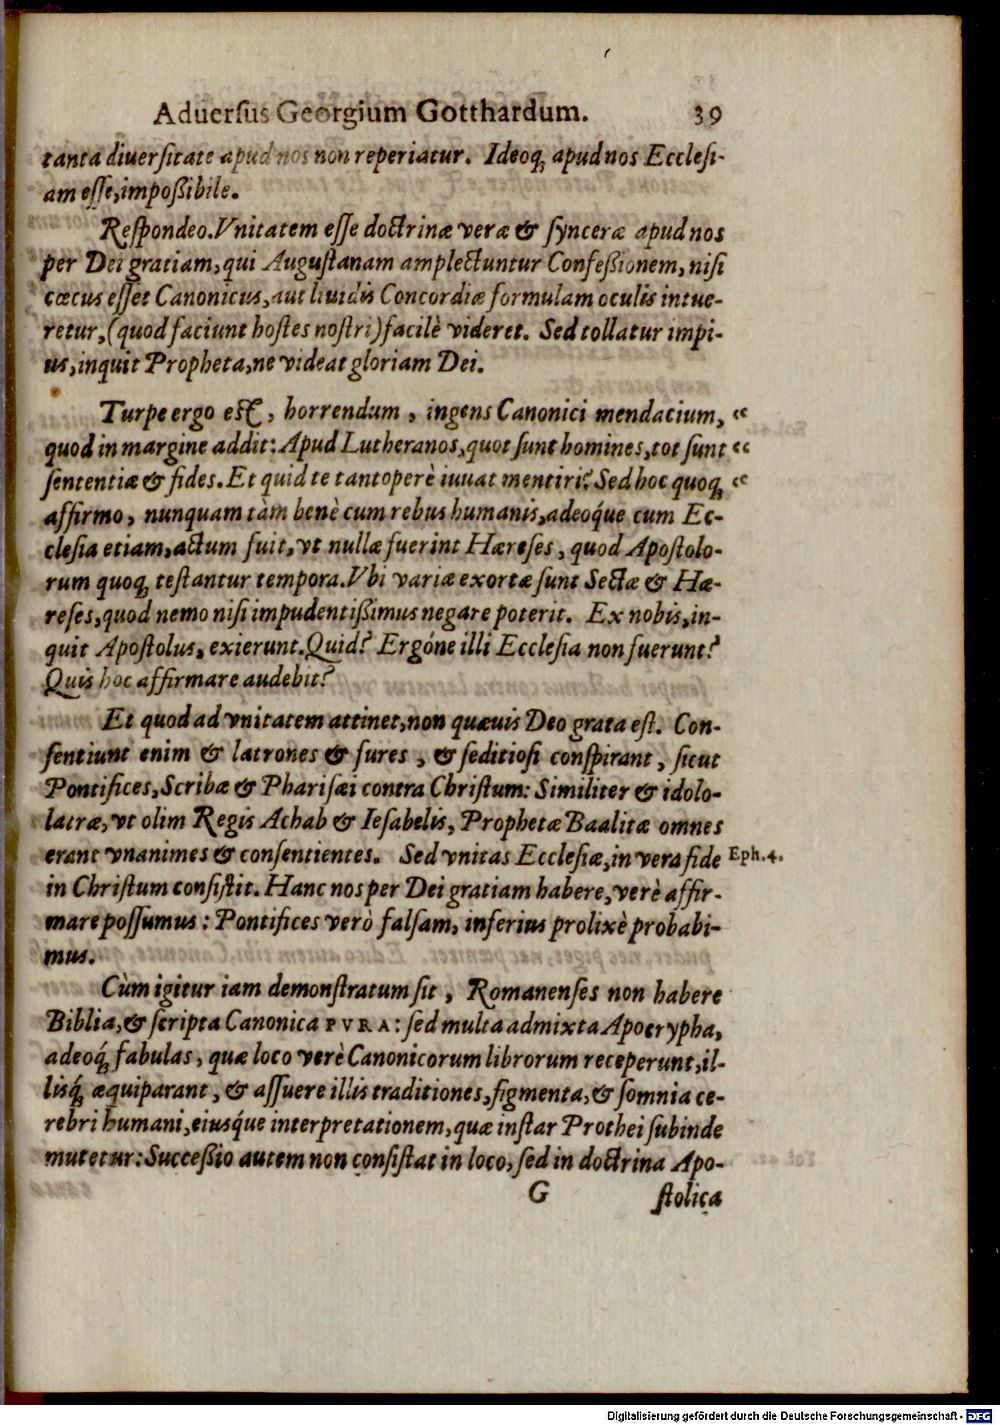 Aduerſus Georgium Gotthardum. 39
tanta diuerſitate apud nos non reperiatur. Ideoq́; apud nos Eccleſi-
am eſſe, impoßibile.
Reſpondeo. Vnitatem eſſe doctrinæ veræ & ſynceræ apud nos
per Dei gratiam, qui Auguſtanam amplectuntur Confeßionem, niſi
cœcus eſſet Canonicus, aut liuidis Concordiæ formulam oculis intue-
retur, (quod faciunt hoſtes noſtri) facilè videret. Sed tollatur impi-
us, inquit Propheta, ne videat gloriam Dei.
Turpe ergo eſt, horrendum, ingens Canonici mendacium, “
quod in margine addit: Apud Lutheranos, quot ſunt homines, tot ſunt “
ſententiæ & fides. Et quid te tantoperè iuuat mentiri? Sed hoc quoq; “
affirmo, nunquam tàm benè cum rebus humanis, adeoq́ue cum Ec-
cleſia etiam, actum fuit, vt nullæ fuerint Hæreſes, quod Apoſtolo-
rum quoq; teſtantur tempora. Vbi variæ exortæ ſunt Sectæ & Hæ-
reſes, quod nemo niſi impudentißimus negare poterit. Ex nobis, in-
quit Apoſtolus, exierunt. Quid? Ergóne illi Eccleſia non fuerunt?
Quis hoc affirmare audebit?
Et quod ad vnitatem attinet, non quæuis Deo grata eſt. Con-
ſentiunt enim & latrones & fures, & ſeditioſi conſpirant, ſicut
Pontifices, Scribæ & Phariſæi contra Chriſtum: Similiter & idolo-
latræ, vt olim Regis Achab & Ieſabelis, Prophetæ Baalitæ omnes
erant vnanimes & conſentientes. Sed vnitas Eccleſiæ, in vera fide Eph. 4.
in Chriſtum conſiſtit. Hanc nos per Dei gratiam habere, verè affir-
mare poſſumus: Pontifices verò falſam, inferius prolixè probabi-
mus.
Cùm igitur iam demonſtratum ſit, Romanenſes non habere
Biblia, & ſcripta Canonica PVRA: ſed multa admixta Apocrypha,
adeoq́; fabulas, quæ loco verè Canonicorum librorum receperunt, il-
lisq́; æquiparant, & aſſuere illis traditiones, figmenta, & ſomnia ce-
rebri humani, eiusq́ue interpretationem, quæ inſtar Prothei ſubinde
mutetur: Succeßio autem non conſiſtat in loco, ſed in doctrina Apo-
G ſtolica
Digitalisierung gefördert durch die Deutsche Forschungsgemeinschaft - DFG